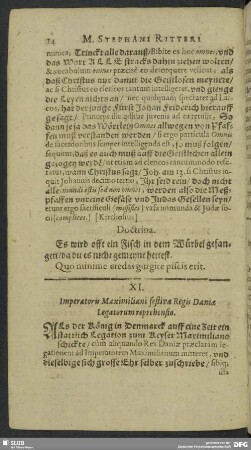 14 M. STEPHANI RITTERI
munica, Trincket alle darauß/Bibite ex hoc omnes, vnd
das Wort ALLE stracks dahin ziehen wolten/
& vocabulum omnes præcisè eò detorquere vellent, als
daß Christus nur damit die Geistlosen meynete/
ac si Christus eo clericos tantum intelligeret, vnd gienge
die Leyen nichts an/ nec quidquam spectaret ad Lai-
cos, hat der junge Fürst Johan Friderich herauff
gesagt/ Princeps ille
Dann je ja das Wörtlein Omnes allwegen von Pfaf-
fen muß verstanden werden/ si ergo particula Omnis
de sacerdotibus semper intelligenda est, so muß folgen/
sequitur, daß es auch muß auff die Geistlichen allein
gezogen werden/ ut etiam ad clericos
retur, wann Christus sagt/ Joh. am 13. si Christus in-
quit Johannis decimo tertio, Ihr seid rein/ doch nicht
alle, mundi estis sed non omnes, werden also die Meß-
pfaffen vnreine Gefäß vnd Judas Gesellen seyn/
erunt ergo sacrificuli (missifices) vasa immunda & Judæ so-
cii (complices.) [Kirchofius]
Doctrina.
Es wird offt ein Fisch in dem Würbel gefan-
gen/ da du es nicht gemeynt hettest.
Quo minimè credas gurgite piscis erit.
XI.
Imperatoris Maximiliani festiva Regis Daniæ
Legatorum reprehensio.
ALs der König in Dennmarck auff eine Zeit ein
stattlich Legation zum Keyser Maximiliano
schickte/ cùm aliquando Rex Daniæ præclaram le-
gationem ad Imperatorem Maximilianum mitteret, vnd
dieselbige sich grosse Ehr selber zuschriebe/ sibiq;
SLUB